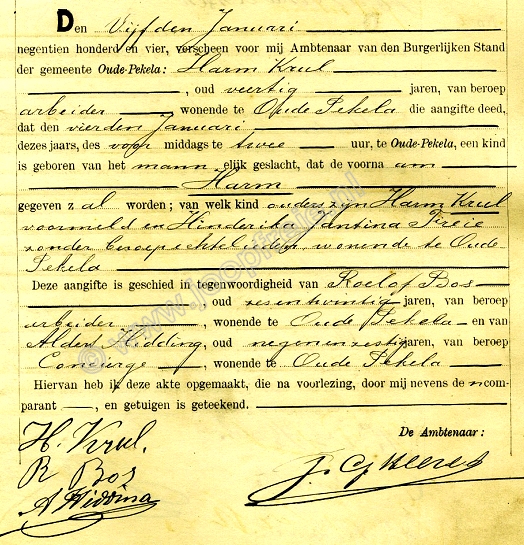 Den Vijfden Januari
negentien honderd en vier, verscheen voor mij Ambtenaar van den Burgerlijken Stand
der gemeente Oude-Pekela: Harm Krul
, oud veertig jaren, van beroep
arbeider wonende te Oude Pekela die aangifte deed,
dat den vierden Januari
dezes jaars, des voor middags te twee uur, te Oude-Pekela, een kind
is geboren van het mann elijk geslacht, dat de voorna am
Harm
gegeven z al worden; van welk kind ouders zijn Harm Krul
voormeld en Hinderika Jantina Freie
zonder beroep echtelieden wonende te Oude
Pekela
Deze aangifte is geschied in tegenwoordigheid van Roelof Bos
, oud zesentwintig jaren, van beroep
arbeider, wonende te Oude Pekela en van
Aldert Hidding, oud negenenzestig jaren, van beroep
Concierge, wonende te Oude Pekela
Hiervan heb ik deze akte opgemaakt, die na voorlezing, door mij nevens de n com-
parant, en getuigen is geteekend.
De Ambtenaar:
H. Krul.
R Bos
A Hidding